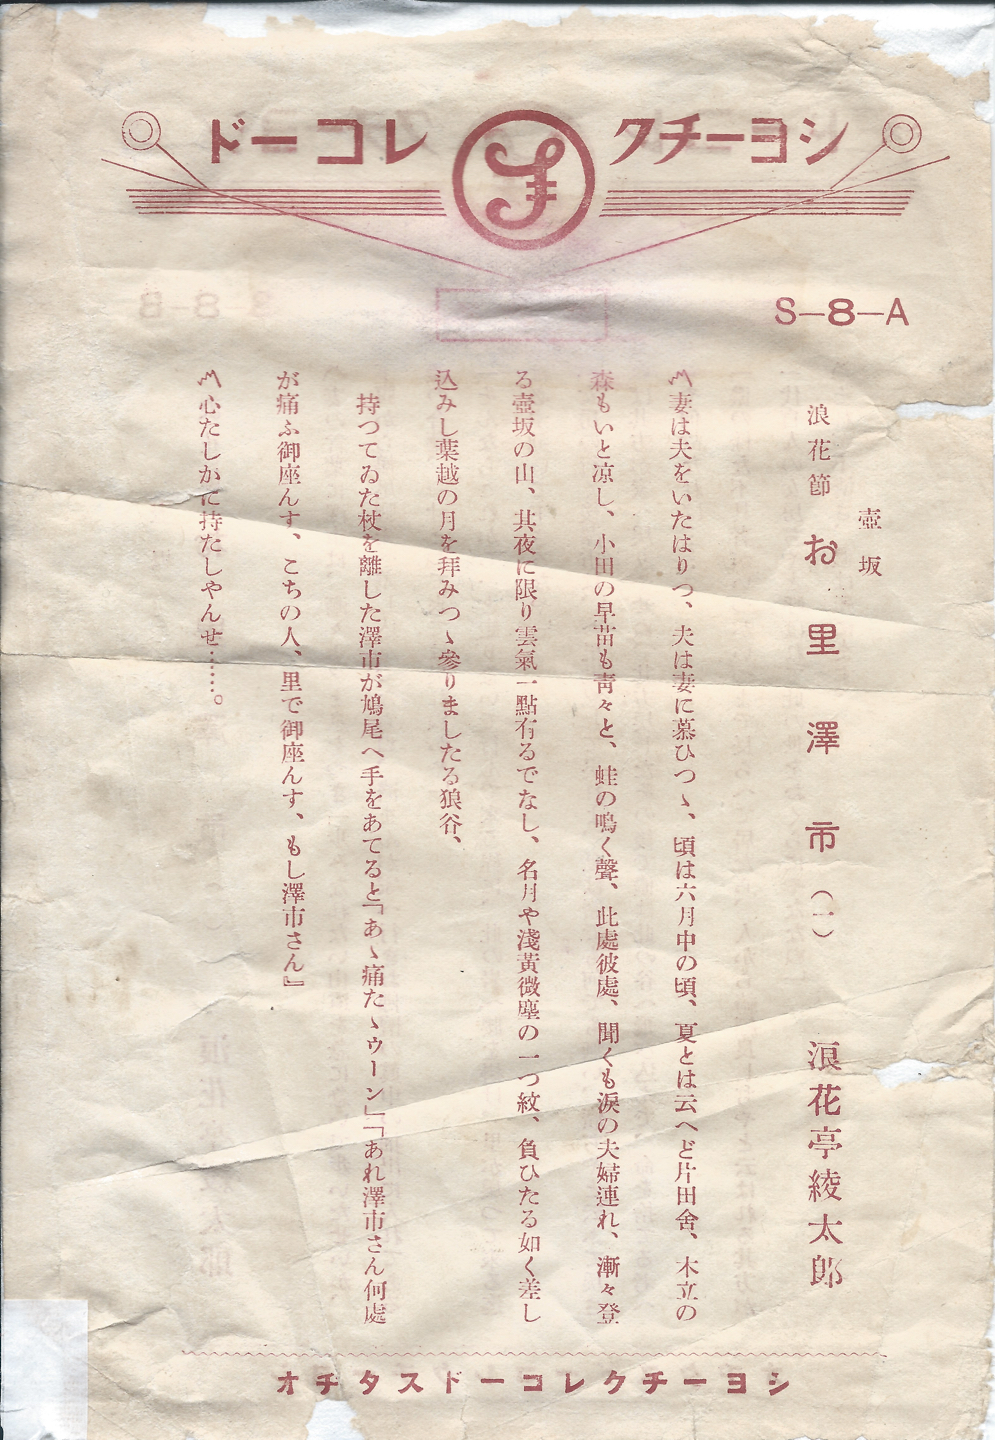 シヨーチク レコード
S-8-A
壺坂
浪花節 お里澤市(一) 浪花亭綾太郎
〽妻は夫をいたはりつ、夫は妻に慕ひつゝ、頃は六月中の頃、夏とは云へど片田舍、木立の
森もいと凉し、小田の早苗も靑々と、蛙の鳴く聲、此處彼處、聞くも淚の夫婦連れ、漸々登
る壺坂の山、其夜に限り雲氣一點有るでなし、名月や淺黃微塵の一つ紋、負ひたる如く差し
込みし葉越の月を拜みつゝ參りましたる狼谷、
持つてゐた杖を離した澤市が鳩尾へ手をあてると「あゝ痛たゝゥーン」「あれ澤市さん何處
が痛ふ御座んす、こちの人、里で御座んす、もし澤市さん』
〽心たしかに持たしやんせ……。
シヨーチクレコードスタヂオ